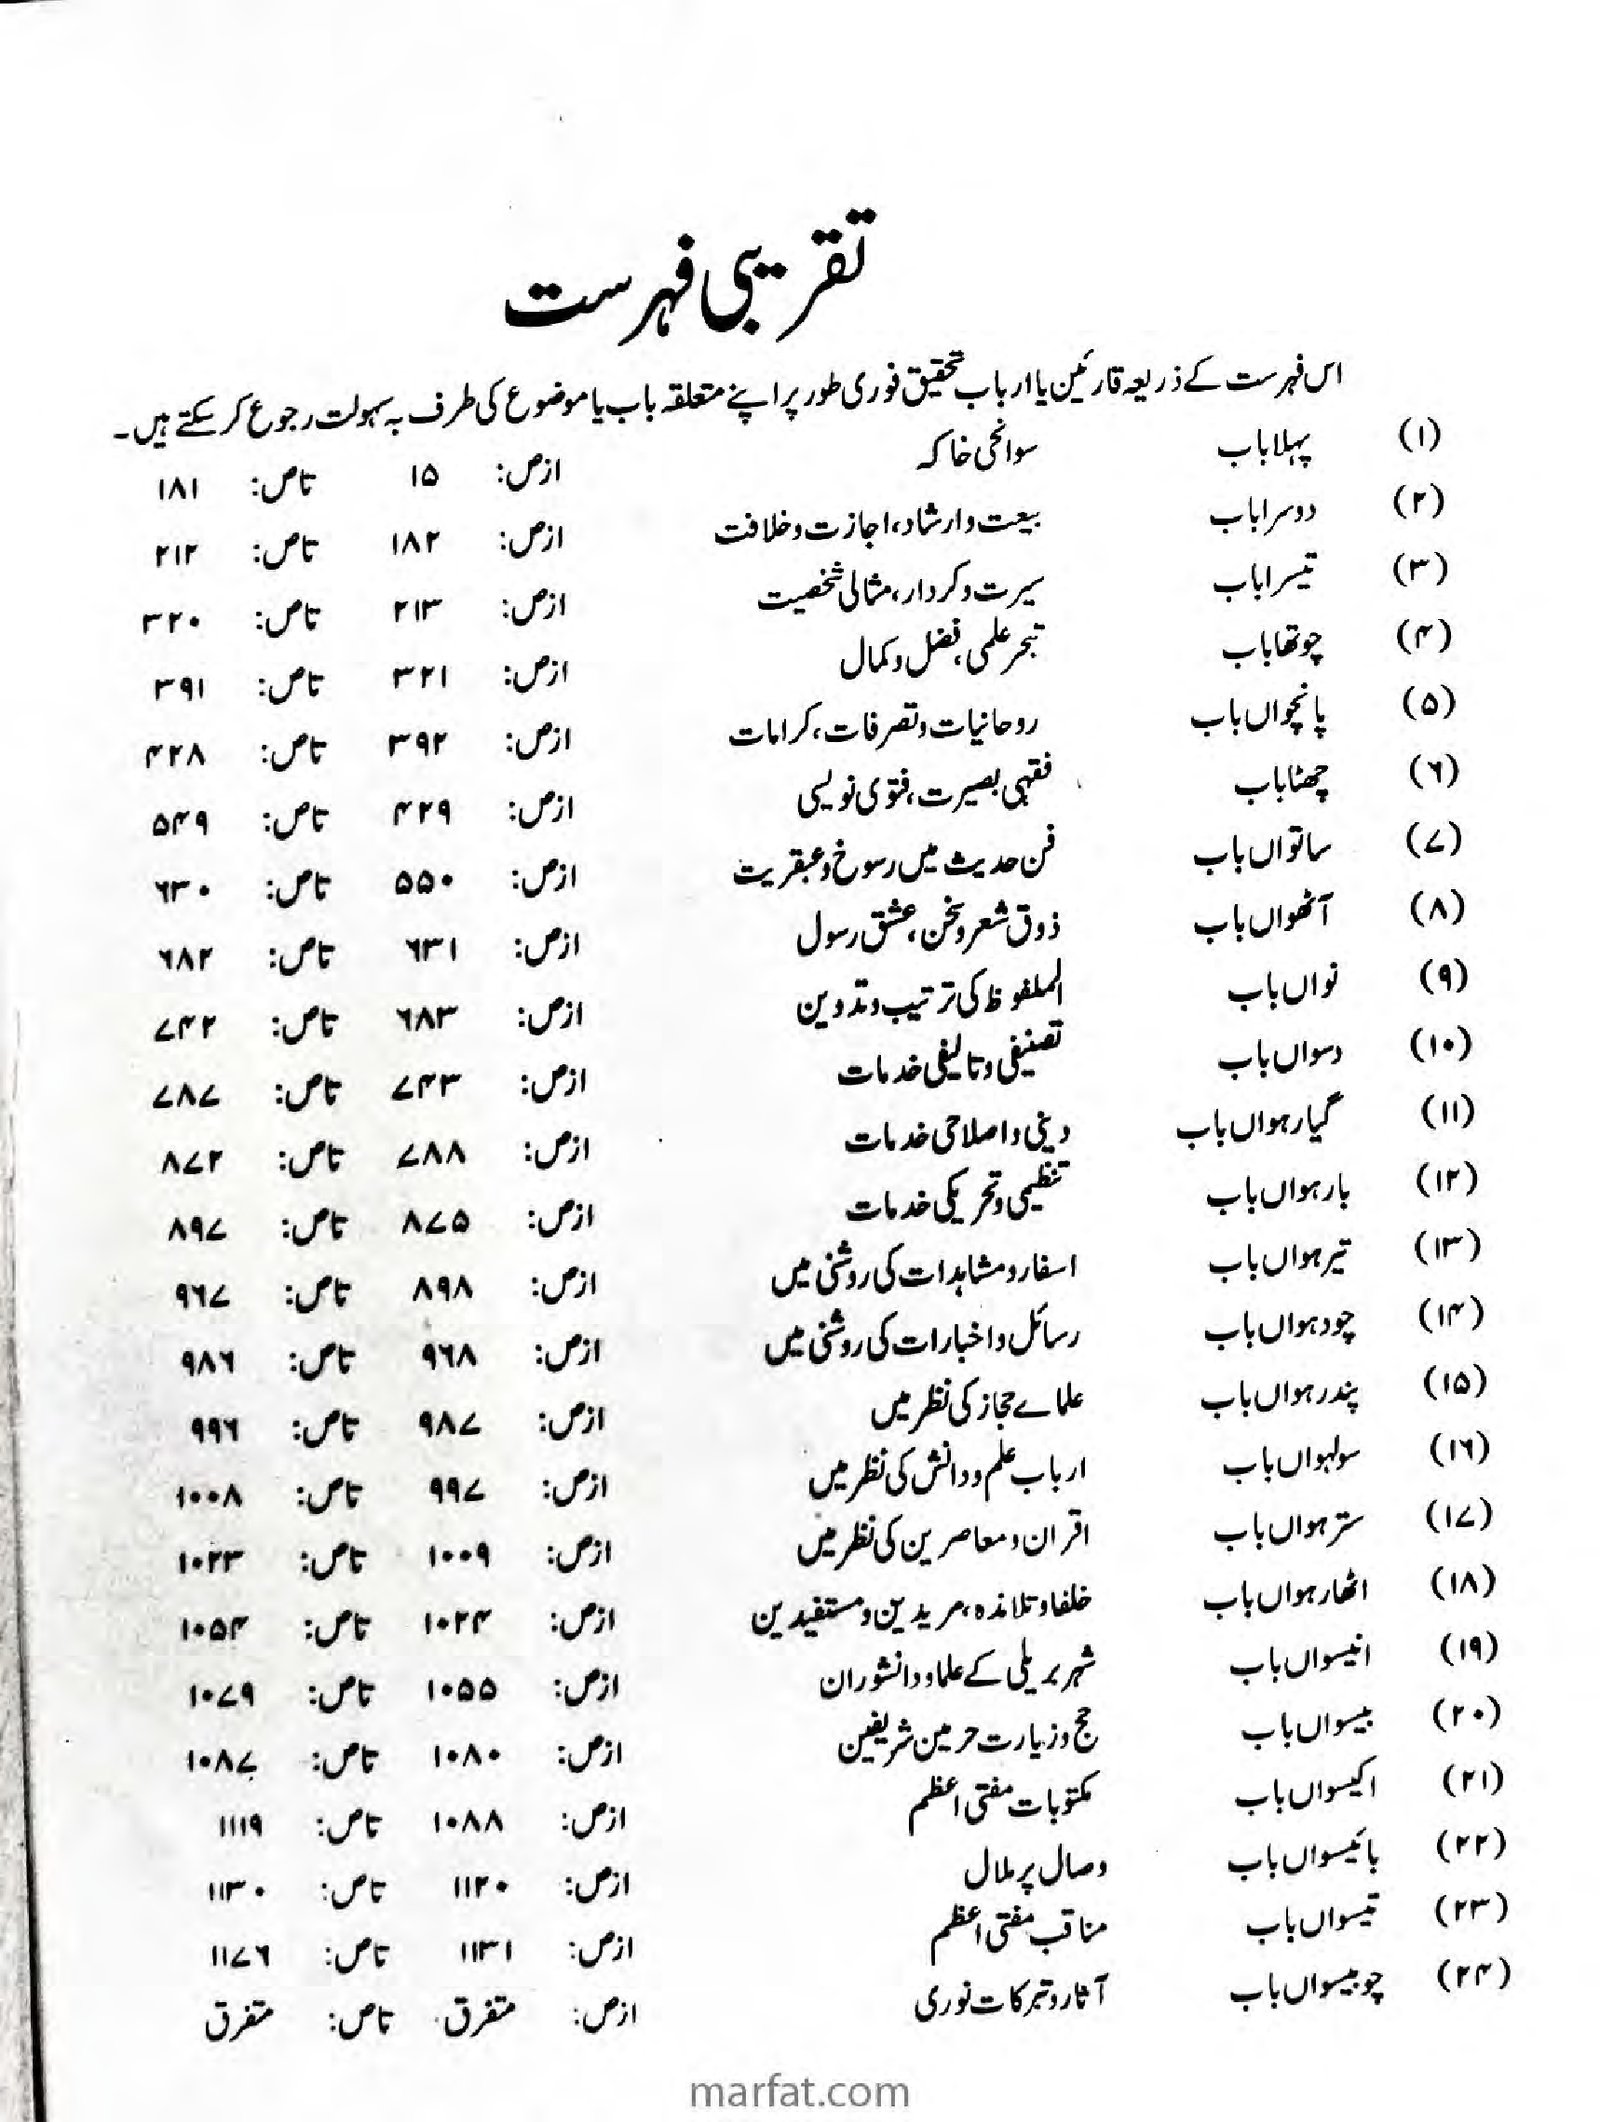 تقریبی فہرست
اس فہرست کے ذریعہ قارئین یا ارباب تحقیق فوری طور پر اپنے متعلقہ باب یا موضوع کی طرف بہ سہولت رجوع کر سکتے ہیں۔
(۱) پہلا باب سوانحی خاکہ ازص: ۱۵ تاص: ۱۸۱
(۲) دوسرا باب بیعت و ارشاد، اجازت و خلافت ازص: ۱۸۲ تاص: ۲۱۲
(۳) تیسرا باب سیرت و کردار، مثالی شخصیت ازص: ۲۱۳ تاص: ۳۲۰
(۴) چوتھا باب تبحر علمی، فضل و کمال ازص: ۳۲۱ تاص: ۳۹۱
(۵) پانچواں باب روحانیات و تصرفات، کرامات ازص: ۳۹۲ تاص: ۴۲۸
(۶) چھٹا باب فقہی بصیرت، فتوی نویسی ازص: ۴۲۹ تاص: ۵۴۹
(۷) ساتواں باب فن حدیث میں رسوخ و عبقریت ازص: ۵۵۰ تاص: ۶۳۰
(۸) آٹھواں باب ذوق شعر و سخن، عشق رسول ازص: ۶۳۱ تاص: ۶۸۲
(۹) نواں باب الملفوظ کی ترتیب و تدوین ازص: ۶۸۳ تاص: ۷۴۲
(۱۰) دسواں باب تصنیفی و تالیفی خدمات ازص: ۷۴۳ تاص: ۷۸۷
(۱۱) گیارہواں باب دینی و اصلاحی خدمات ازص: ۷۸۸ تاص: ۸۷۲
(۱۲) بارہواں باب تنظیمی و تحریکی خدمات ازص: ۸۷۵ تاص: ۸۹۷
(۱۳) تیرہواں باب اسفار و مشاہدات کی روشنی میں ازص: ۸۹۸ تاص: ۹۶۷
(۱۴) چودہواں باب رسائل و اخبارات کی روشنی میں ازص: ۹۶۸ تاص: ۹۸۶
(۱۵) پندرہواں باب علماے حجاز کی نظر میں ازص: ۹۸۷ تاص: ۹۹۶
(۱۶) سولہواں باب ارباب علم و دانش کی نظر میں ازص: ۹۹۷ تاص: ۱۰۰۸
(۱۷) سترہواں باب اقران و معاصرین کی نظر میں ازص: ۱۰۰۹ تاص: ۱۰۲۳
(۱۸) اٹھارہواں باب خلفا و تلامذہ، مریدین و مستفیدین ازص: ۱۰۲۴ تاص: ۱۰۵۴
(۱۹) انیسواں باب شہر بریلی کے علما و دانشوران ازص: ۱۰۵۵ تاص: ۱۰۷۹
(۲۰) بیسواں باب حج و زیارت حرمین شریفین ازص: ۱۰۸۰ تاص: ۱۰۸۷
(۲۱) اکیسواں باب مکتوبات مفتی اعظم ازص: ۱۰۸۸ تاص: ۱۱۱۹
(۲۲) بائیسواں باب وصال پر ملال ازص: ۱۱۲۰ تاص: ۱۱۳۰
(۲۳) تیسواں باب مناقب مفتی اعظم ازص: ۱۱۳۱ تاص: ۱۱۷۶
(۲۴) چوبیسواں باب آثار و تبرکات نوری ازص: متفرق تاص: متفرق
marfat.com